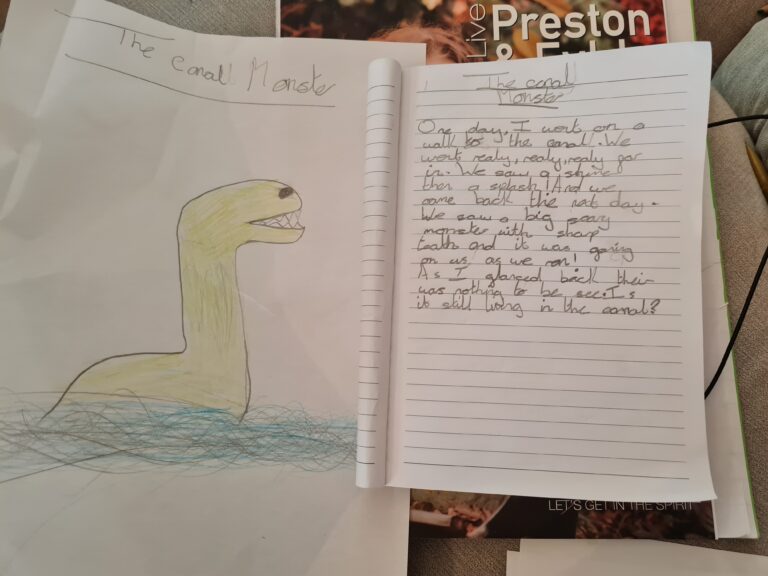 The Canall Monster
Live
Preston
&
The canall
Monster
One day, I went on a
walk to the canal. We
went realy, realy, realy far
in. We saw a shine
then a splash! And we
came back the next day.
We saw a big scary
monster with sharp
teath and it was ganing
on us, as we ran!
As I glanced back their
was nothing to be see. Is
it still living in the canal?
LET'S GET IN THE SPIRIT